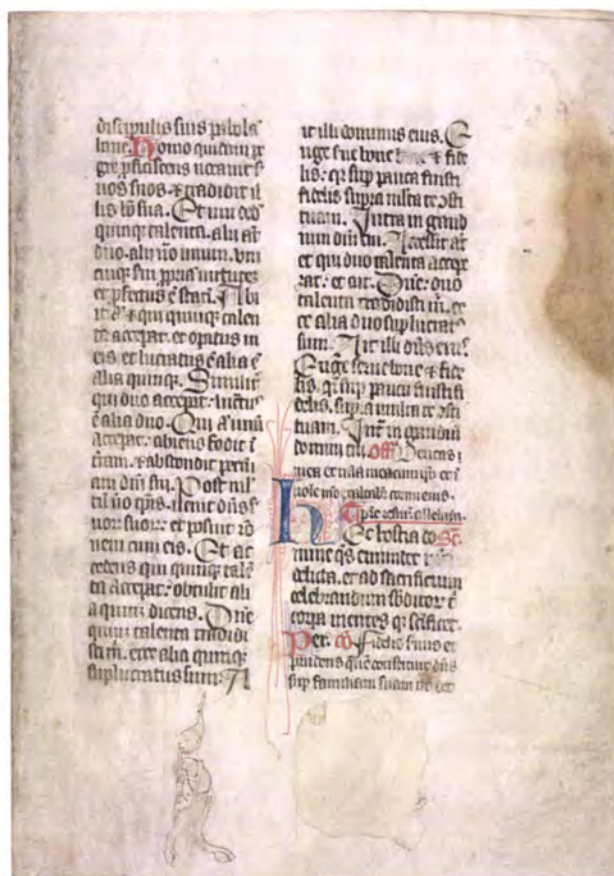 discipulis suis
hanc. Homo quidem
uocauit s
uos suos. & tradidit il
lis bo sua. Et uni ded
quinq talenta. alii at
duo. alii uo unum. uni
et pfectus e stati. Abi
it & qui quinq talen
ta accepat. et opatus in
eis. et lucratus e alia
alia quinq. Similit
qui duo accepat. lucrat
e alia duo. Qui unu
accepat. abiens fodit i
tram. & abscondit pecu
am dni sui. Post mul
uenit dns s
uor suor. et posuit ro
nem cum eis. Et ac
cedens qui quinq tale
ta accepat. obtulit ali
a quinq dicens. Dne
quinq talenta tradidi
sti m. ecce alia quinq
suplucratus sum. A
it illi dominus eius. E
uge sue bone & fide
lis. qr sup pauca fuisti
fidelis supra multa te
tuam. Intra in gaud
ium dni tui. Accessit at
et qui duo talenta accep
rat. et ait. Dne. duo
talenta tradidisti m. ec
ce alia duo suplucrat
sum. Ait illi dns eius.
Euge serue bone & fide
lis. qr sup pauca fuisti fi
delis. supra multa te
tuam. Int in gaudiu
domini tui. off Ueritas
mea et mia mea cum ipo et i
noie meo exaltabit cornu eius.
alleluia.
hEc hostia do Sc
mine qs emundet
delicta. et ad sacrificium
celebrandum sbditor
corpa mentes q scificet.
Per. co Fidelis suus et
prudens que constituit dns
sup familiam suam ut det